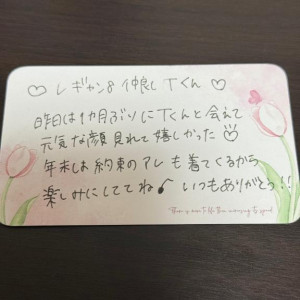 ♡ レギャン8 仲良し Tくん ♡
昨日は1カ月ぶりにTくんと会えて
元気な顔見れて嬉しかった♡
年末は約束のアレも着てくるから
楽しみにしててね♪ いつもありがとう!!